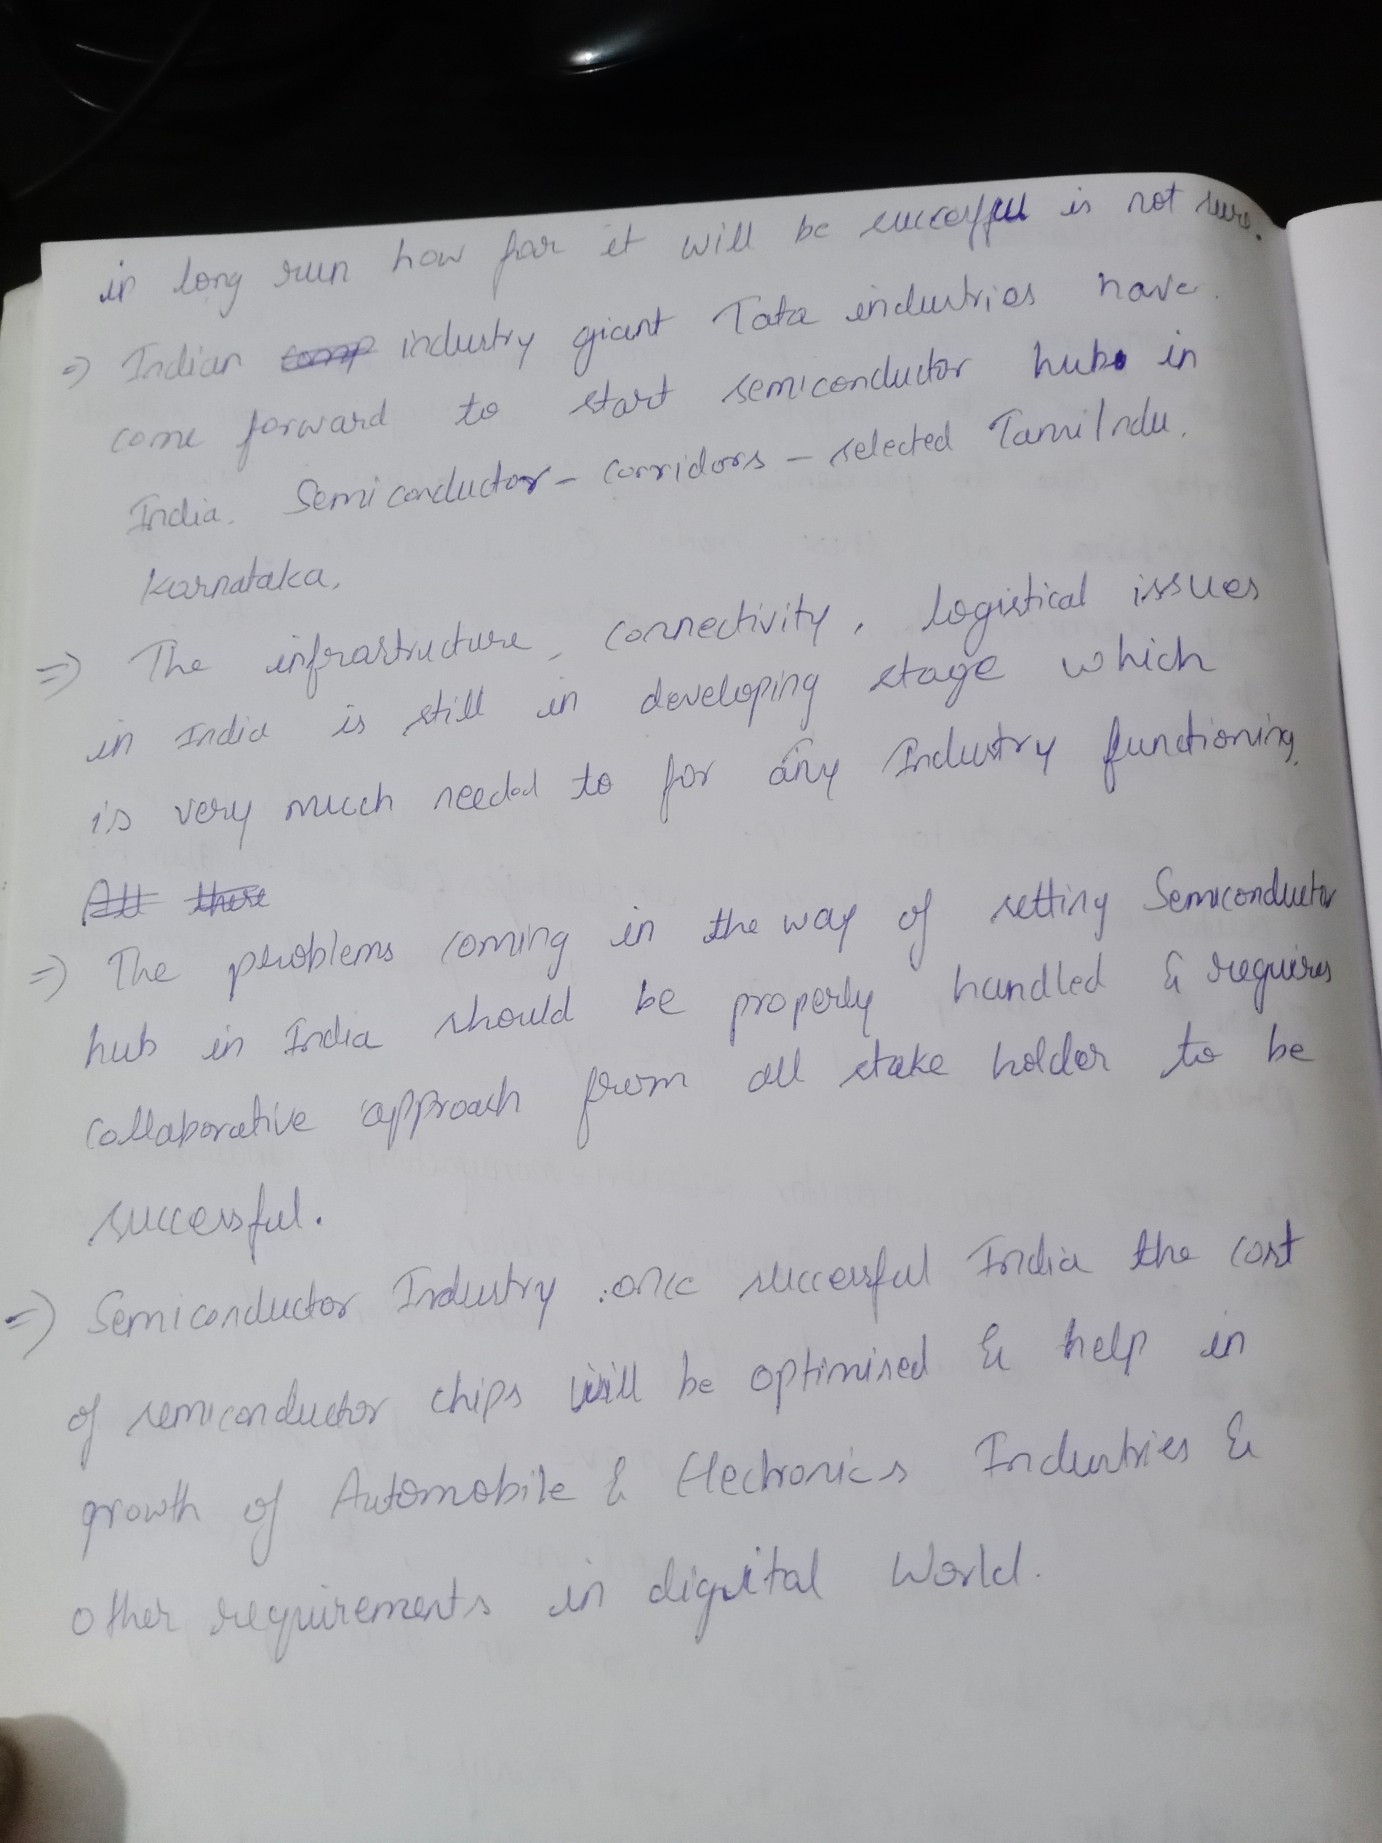 in long run how far it will be successful is not sure.
=> Indian comp industry giant Tata industries have
come forward to start semiconductor hubs in
India. Semiconductor - corridors - selected Tamilndu.
Karnataka.
=> The infrastructure, connectivity, logistical issues
in India is still in developing stage which
is very much needed to for any Industry functioning.
Att there
=> The problems coming in the way of setting Semiconductor
hub in India should be properly handled & requires
collaborative approach from all stake holder to be
successful.
=> Semiconductor Industry once successful India the cost
of semiconductor chips will be optimised & help in
growth of Automobile & Electronics Industries &
other requirements in digital World.